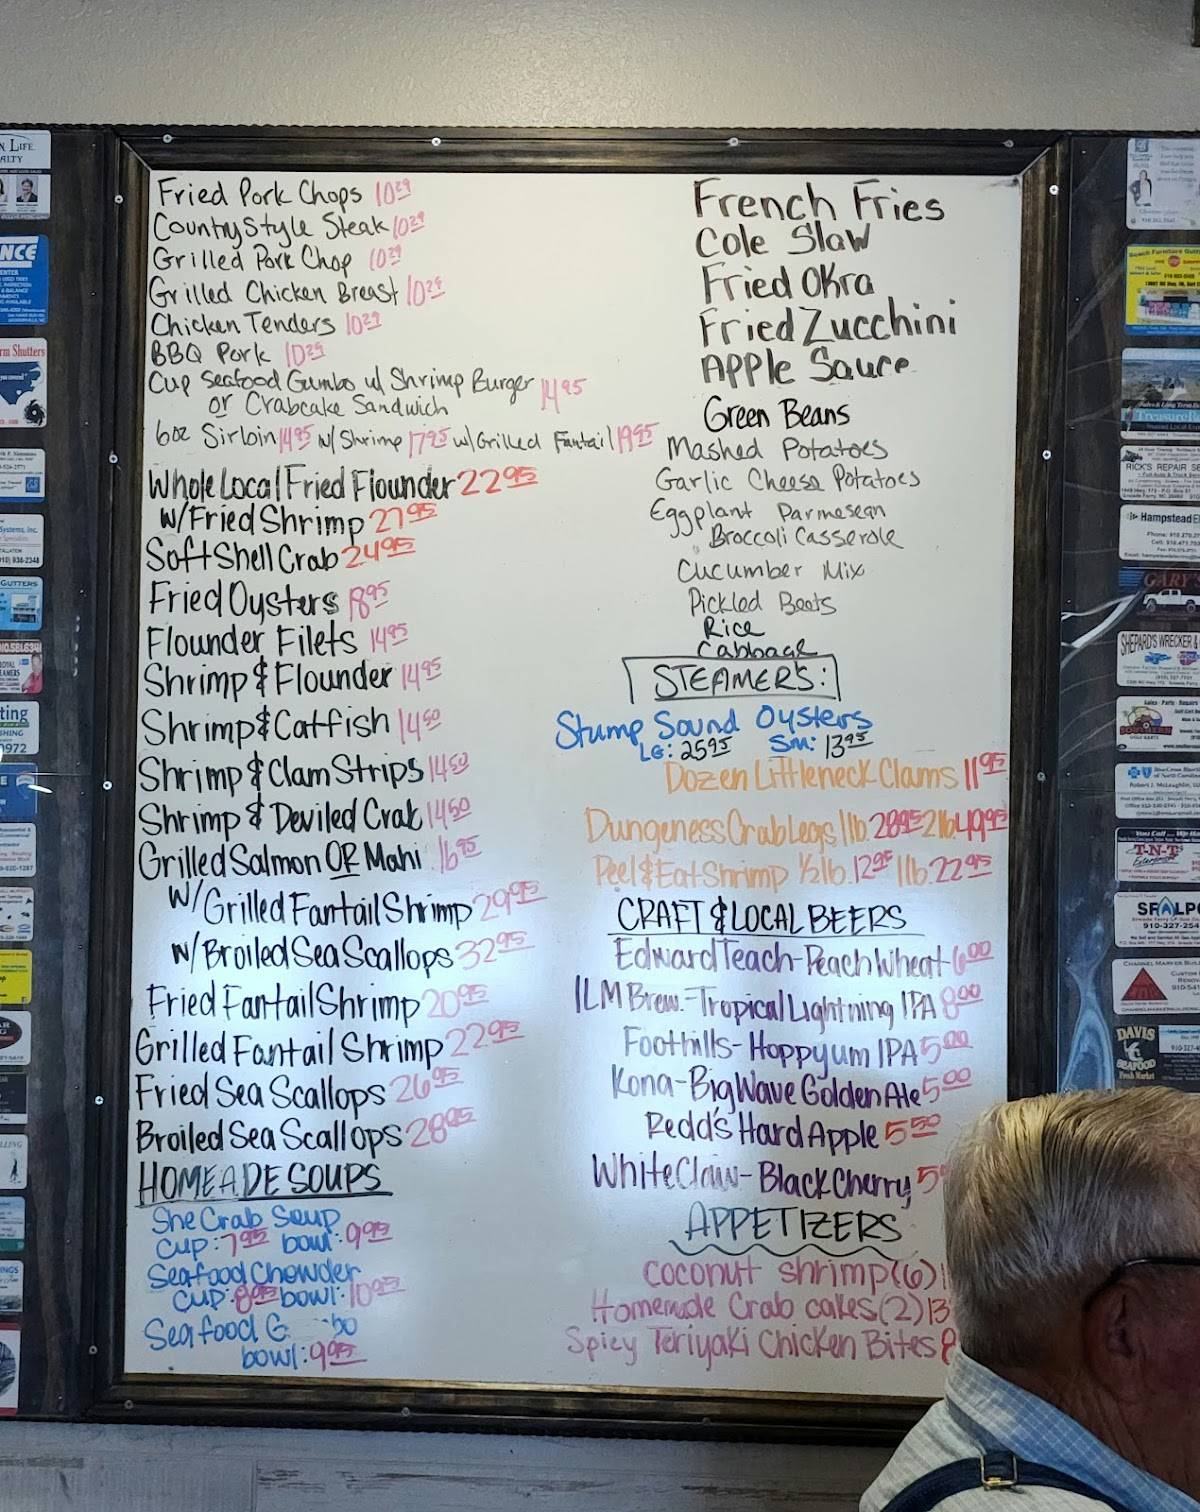 Fried Pork Chops 10.29
Country Style Steak 10.29
Grilled Pork Chop 10.29
Grilled Chicken Breast 10.29
Chicken Tenders 10.29
BBQ Pork 10.29
Cup Seafood Gumbo w/ Shrimp Burger 14.95
or Crabcake Sandwich
6oz Sirloin 14.95 w/ Shrimp 17.95 w/ Grilled Fantail 19.95
Whole Local Fried Flounder 22.95
w/ Fried Shrimp 27.95
Soft Shell Crab 24.95
Fried Oysters 18.95
Flounder Filets 14.95
Shrimp & Flounder 14.95
Shrimp & Catfish 14.50
Shrimp & Clam Strips 14.50
Shrimp & Deviled Crab 14.50
Grilled Salmon OR Mahi 16.95
w/ Grilled Fantail Shrimp 29.95
w/ Broiled Sea Scallops 32.95
Fried Fantail Shrimp 20.95
Grilled Fantail Shrimp 22.95
Fried Sea Scallops 26.95
Broiled Sea Scallops 28.95
HOMEADE SOUPS
She Crab Soup
cup: 7.95 bowl: 9.95
Seafood Chowder
cup: 8.95 bowl: 10.95
Seafood G bo
bowl: 9.95
French Fries
Cole Slaw
Fried Okra
Fried Zucchini
Apple Sauce
Green Beans
Mashed Potatoes
Garlic Cheese Potatoes
Eggplant Parmesean
Broccoli Casserole
Cucumber Mix
Pickled Beets
Rice
Cabbage
STEAMERS:
Stump Sound Oysters
LG: 25.95 Sm: 13.95
Dozen Littleneck Clams 11.95
Dungeness Crab Legs 1lb. 28.95 2lb 49.95
Peel & Eat Shrimp 1/2 lb. 12.95 1lb. 22.95
CRAFT & LOCAL BEERS
Edward Teach - Peach Wheat 6.00
ILM Brew. - Tropical Lightning IPA 8.00
Foothills - Hoppyum IPA 5.00
Kona - Big Wave Golden Ale 5.00
Redd's Hard Apple 5.50
White Claw - Black Cherry 5
APPETIZERS
Coconut shrimp (6) 1
Homemade Crab cakes (2) 13
Spicy Teriyaki Chicken Bites 8
RICK'S REPAIR
Hampstead
GARY'S
SHEPARD'S WRECKER &
T-N-T
910-327-254
DAVIS
SEAFOOD
Fresh Market